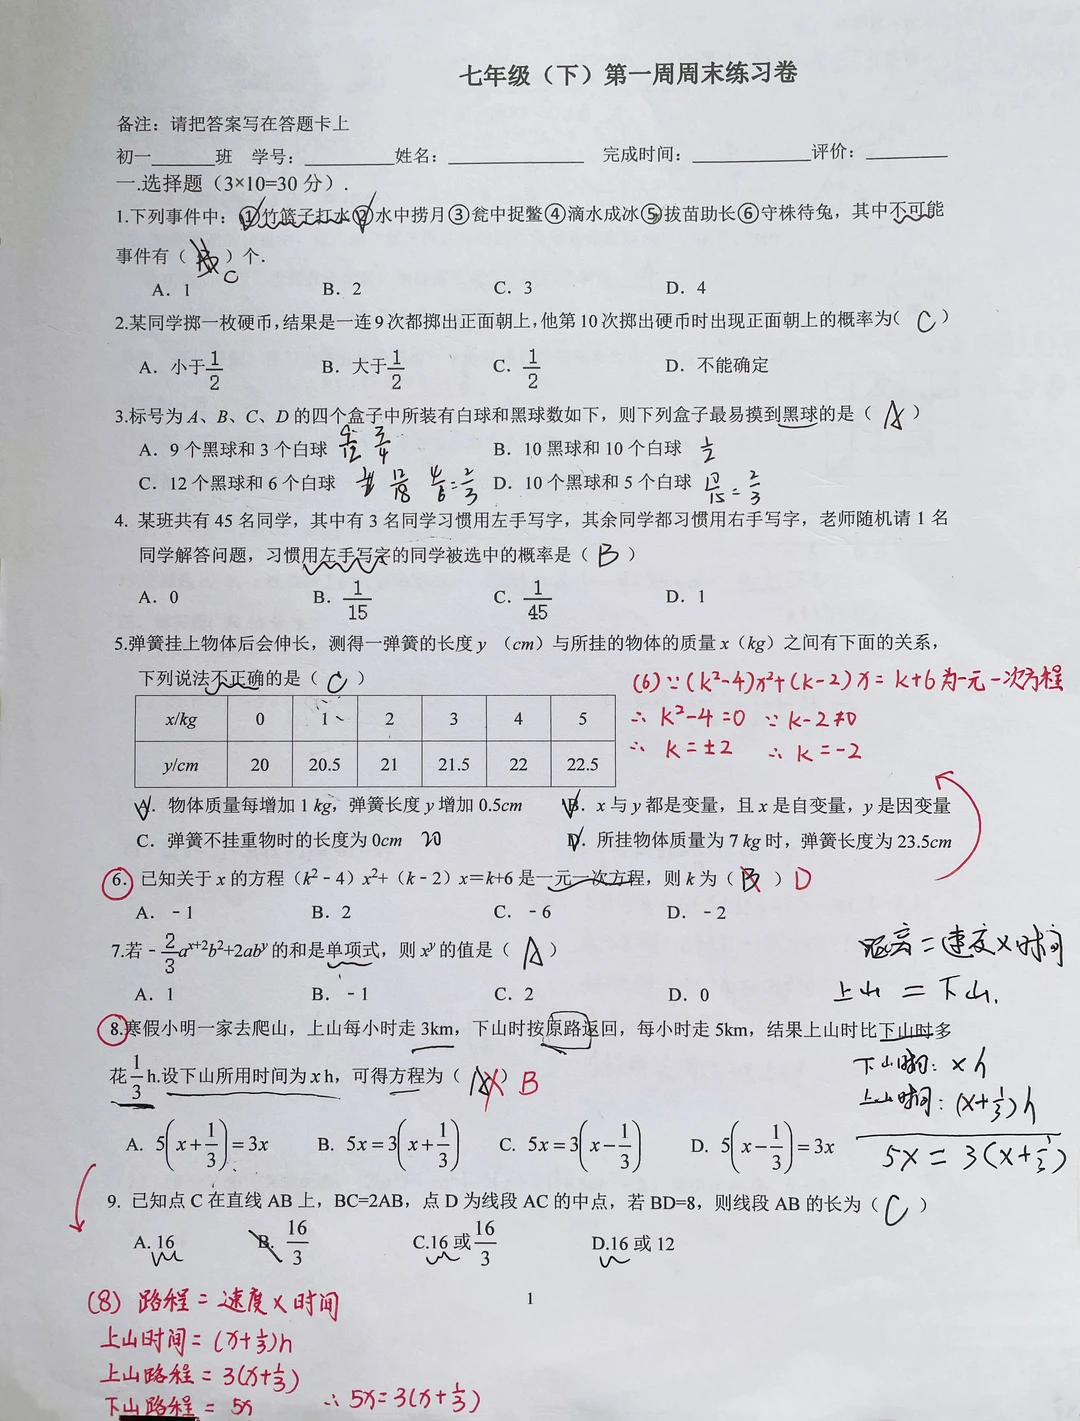 七年级（下）第一周周末练习卷
备注：请把答案写在答题卡上
初一______班 学号：_________姓名：______________ 完成时间：____________评价：________
一.选择题（3×10=30 分）.
1.下列事件中：①竹篮子打水②水中捞月③瓮中捉鳖④滴水成冰⑤拔苗助长⑥守株待兔，其中不可能
事件有（ B ）个.
C
A．1 B．2 C．3 D．4
2.某同学掷一枚硬币，结果是一连 9 次都掷出正面朝上，他第 10 次掷出硬币时出现正面朝上的概率为（ C ）
A．小于1/2 B．大于1/2 C．1/2 D．不能确定
3.标号为 A、B、C、D 的四个盒子中所装有白球和黑球数如下，则下列盒子最易摸到黑球的是（ A ）
A．9 个黑球和 3 个白球 9/12 3/4 B．10 黑球和 10 个白球 1/2
C．12 个黑球和 6 个白球 12/18 4/6=2/3 D．10 个黑球和 5 个白球 10/15=2/3
4. 某班共有 45 名同学，其中有 3 名同学习惯用左手写字，其余同学都习惯用右手写字，老师随机请 1 名
同学解答问题，习惯用左手写字的同学被选中的概率是（ B ）
A．0 B．1/15 C．1/45 D．1
5.弹簧挂上物体后会伸长，测得一弹簧的长度 y （cm）与所挂的物体的质量 x（kg）之间有下面的关系，
下列说法不正确的是（ C ）
x/kg 0 1 2 3 4 5
y/cm 20 20.5 21 21.5 22 22.5
(6) ∵(k²-4)x²+(k-2)x=k+6为一元一次方程
∴ k²-4=0 ∵ k-2≠0
∴ k=±2 ∴ k=-2
A．物体质量每增加 1 kg，弹簧长度 y 增加 0.5cm B．x 与 y 都是变量，且 x 是自变量，y 是因变量
C．弹簧不挂重物时的长度为 0cm 20 D．所挂物体质量为 7 kg 时，弹簧长度为 23.5cm
6．已知关于 x 的方程（k²﹣4）x²+（k﹣2）x＝k+6 是一元一次方程，则 k 为（ B ）D
A．﹣1 B．2 C．﹣6 D．﹣2
7.若﹣2/3aˣ⁺²b²+2abʸ 的和是单项式，则 xʸ 的值是（ A ）
A．1 B．﹣1 C．2 D．0
距离=速度×时间
上山=下山.
8.寒假小明一家去爬山，上山每小时走 3km，下山时按原路返回，每小时走 5km，结果上山时比下山时多
花1/3h.设下山所用时间为 x h，可得方程为（ A ）B
下山时间：x h
上山时间：(x+1/3)h
5x=3(x+1/3)
A. 5(x+1/3)=3x B. 5x=3(x+1/3) C. 5x=3(x-1/3) D. 5(x-1/3)=3x
9. 已知点 C 在直线 AB 上，BC=2AB，点 D 为线段 AC 的中点，若 BD=8，则线段 AB 的长为（ C ）
A. 16 B. 16/3 C.16 或16/3 D.16 或 12
1
(8) 路程=速度×时间
上山时间=(x+1/3)h
上山路程=3(x+1/3)
下山路程=5x ∴5x=3(x+1/3)